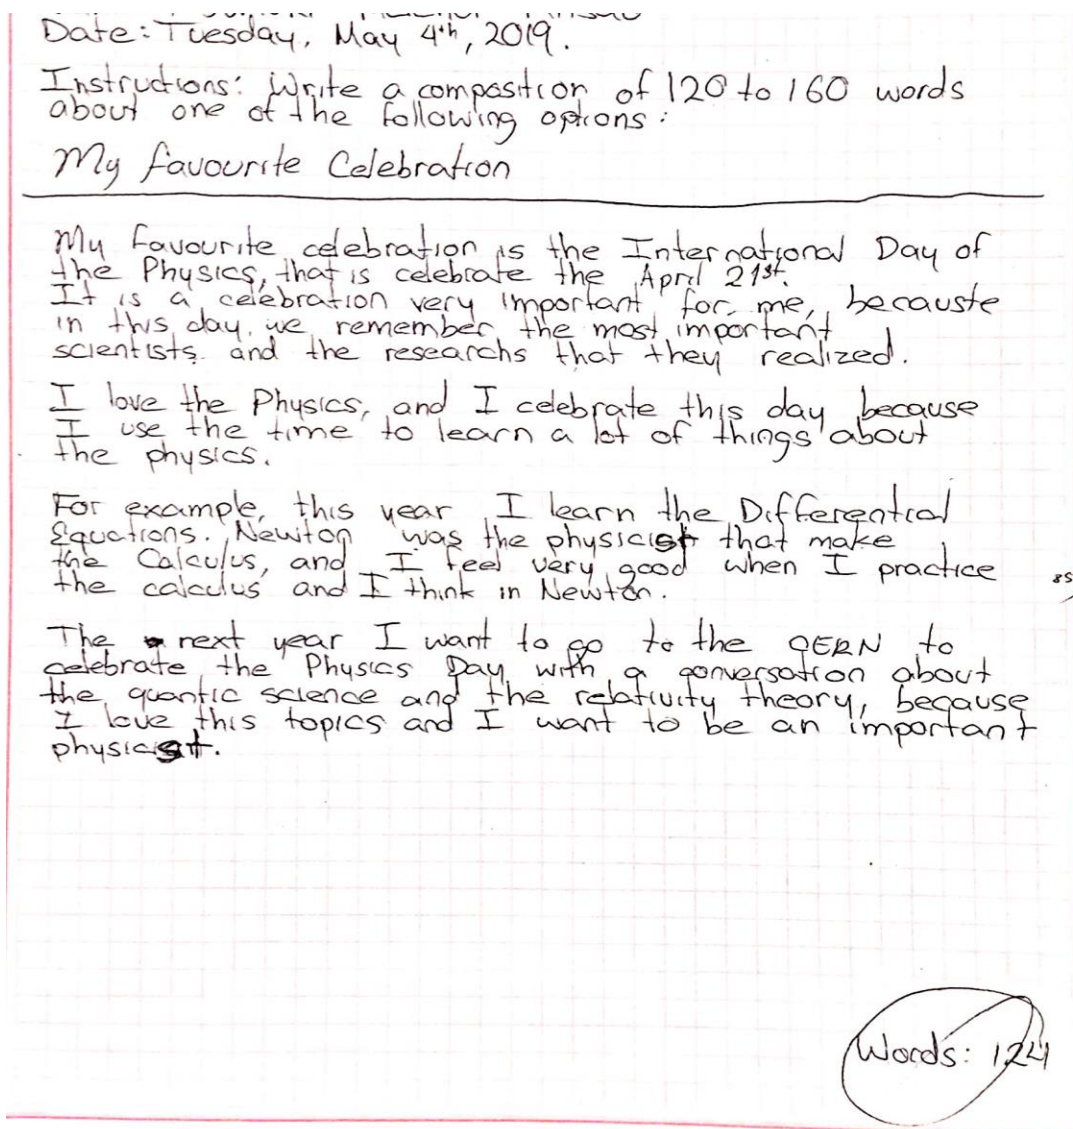 Date: Tuesday, May 4th, 2019.
Instructions: Write a composition of 120 to 160 words
about one of the following options:
My favourite Celebration
My favourite celebration is the International Day of
the Physics, that is celebrate the April 21st.
It is a celebration very important for me, becauste
in this day, we remember the most important
scientists and the researchs that they realized.
I love the Physics, and I celebrate this day because
I use the time to learn a lot of things about
the physics.
For example, this year I learn the Differential
Equations. Newton was the physicist that make
the Calculus, and I feel very good when I practice
the calculus and I think in Newton.
85
The next year I want to go to the CERN to
celebrate the Physics Day with a conversation about
the quantic science and the relativity theory, because
I love this topics and I want to be an important
physicist.
Words: 124